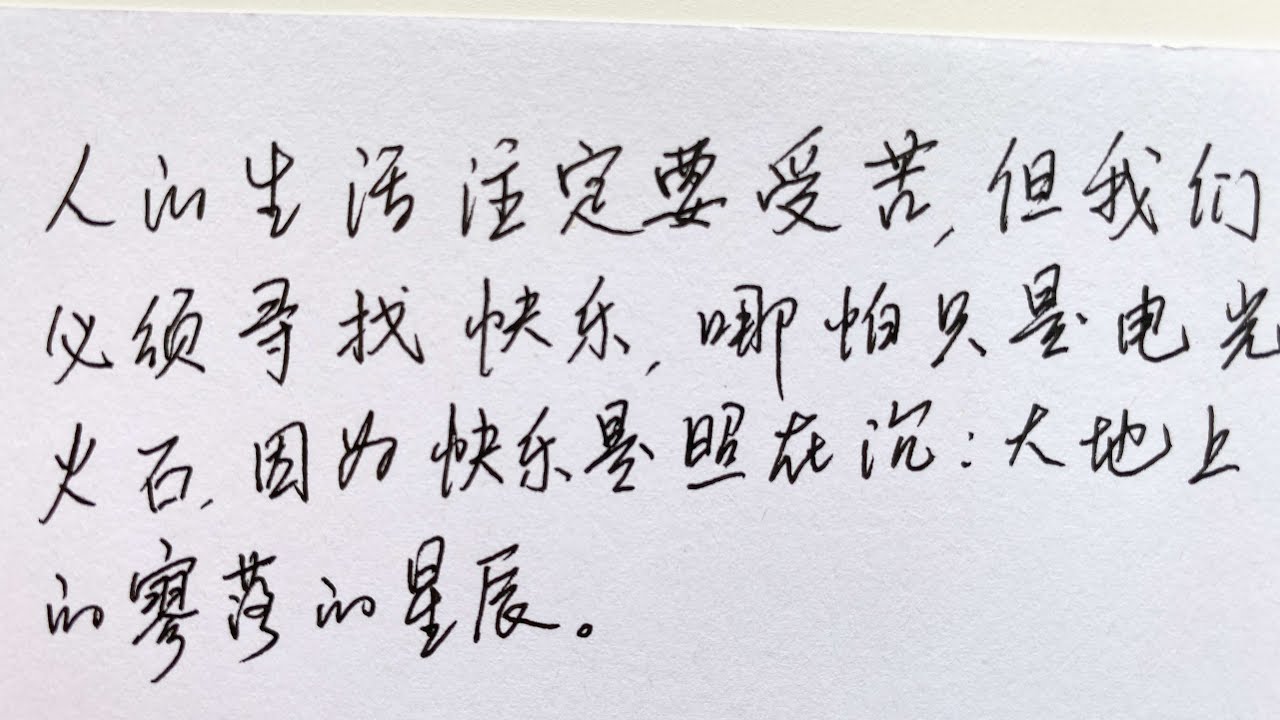 人的生活注定要受苦,但我们
必须寻找快乐,哪怕只是电光
火石,因为快乐是照在沉:大地上
的寥落的星辰。